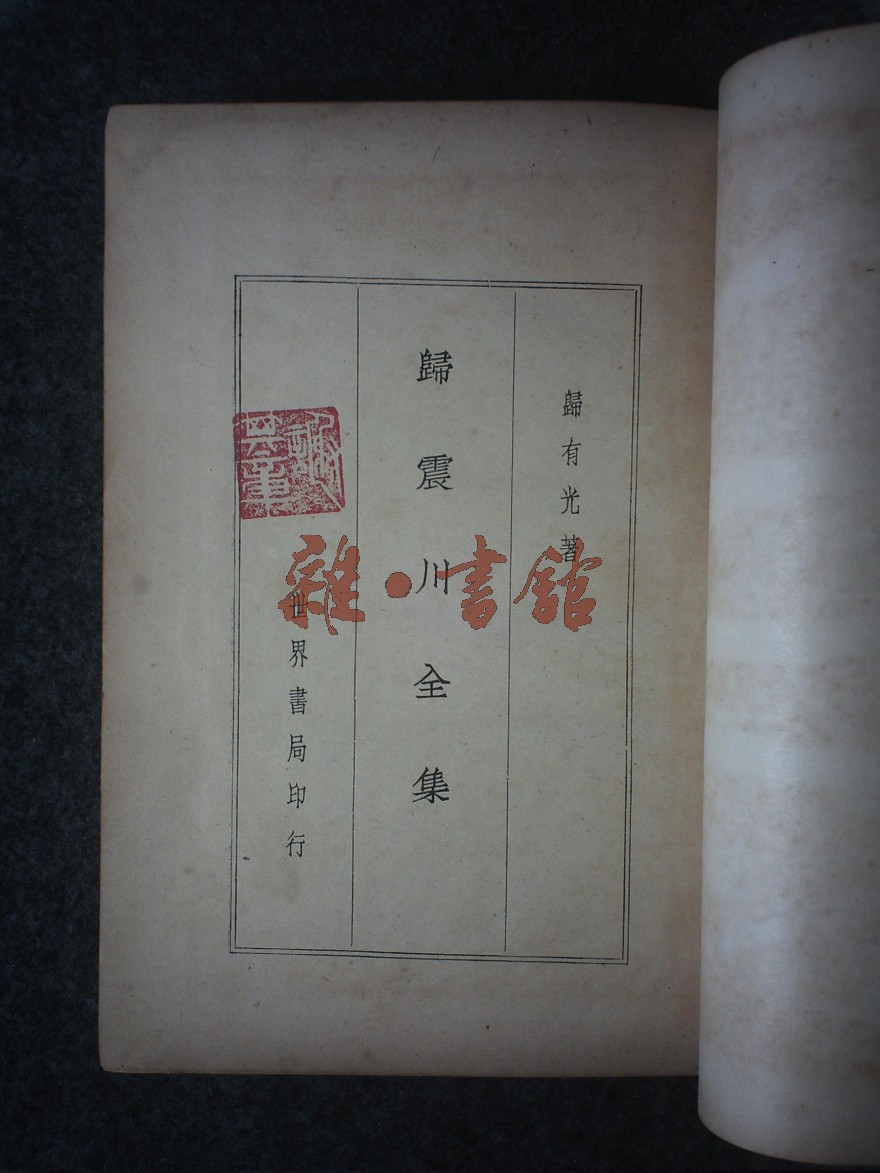 歸有光著
歸震川全集
世界書局印行
雜·書館